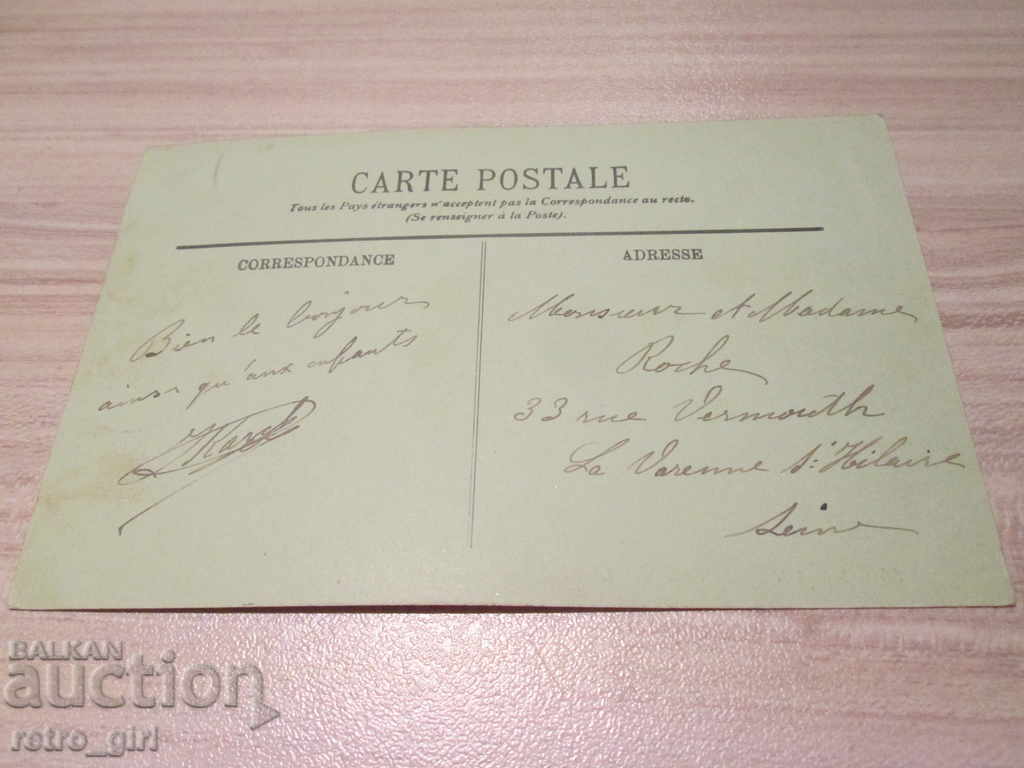 CARTE POSTALE
Tous les Pays étrangers n'acceptent pas la Correspondance au recto.
(Se renseigner à la Poste).
CORRESPONDANCE
Bien le bonjour
ainsi qu'aux enfants
ADRESSE
Monsieur et Madame
Roche
33 rue Vermouth
La Varenne St Hilaire
Seine
BALKAN
auction
retro_girl